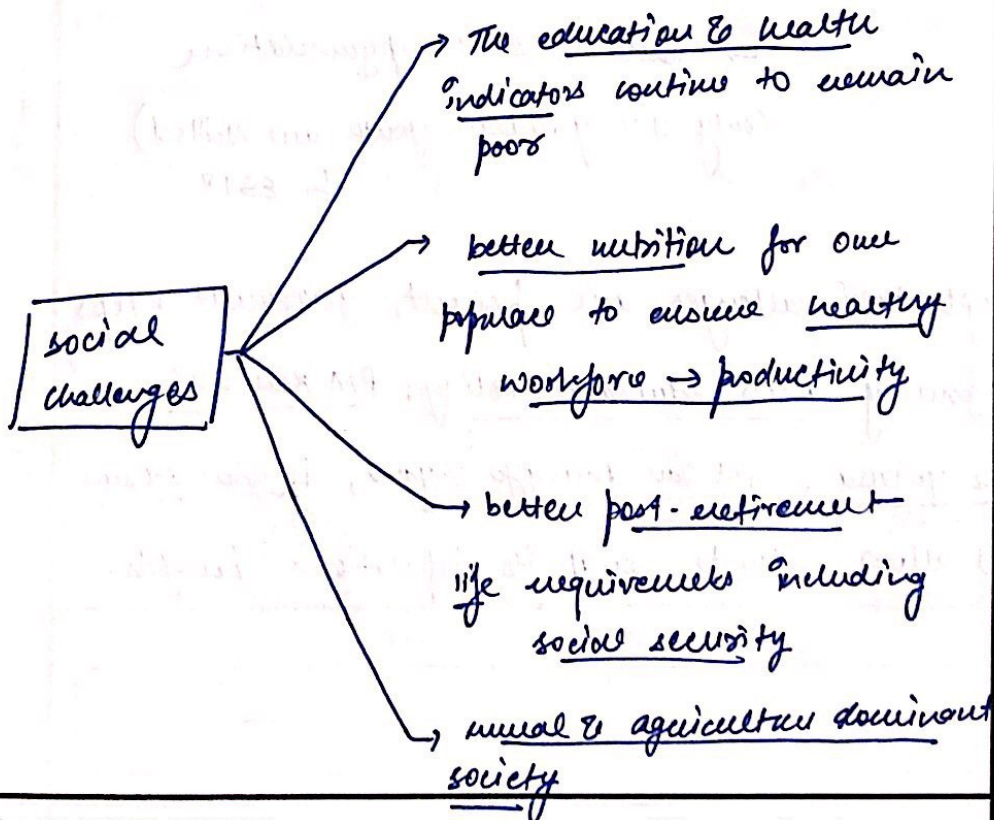 social
challenges
The education & health
indicators continue to remain
poor
better nutrition for our
populace to ensure healthy
workforce → productivity
better post-retirement
life requirements including
social security
rural & agriculture dominant
society